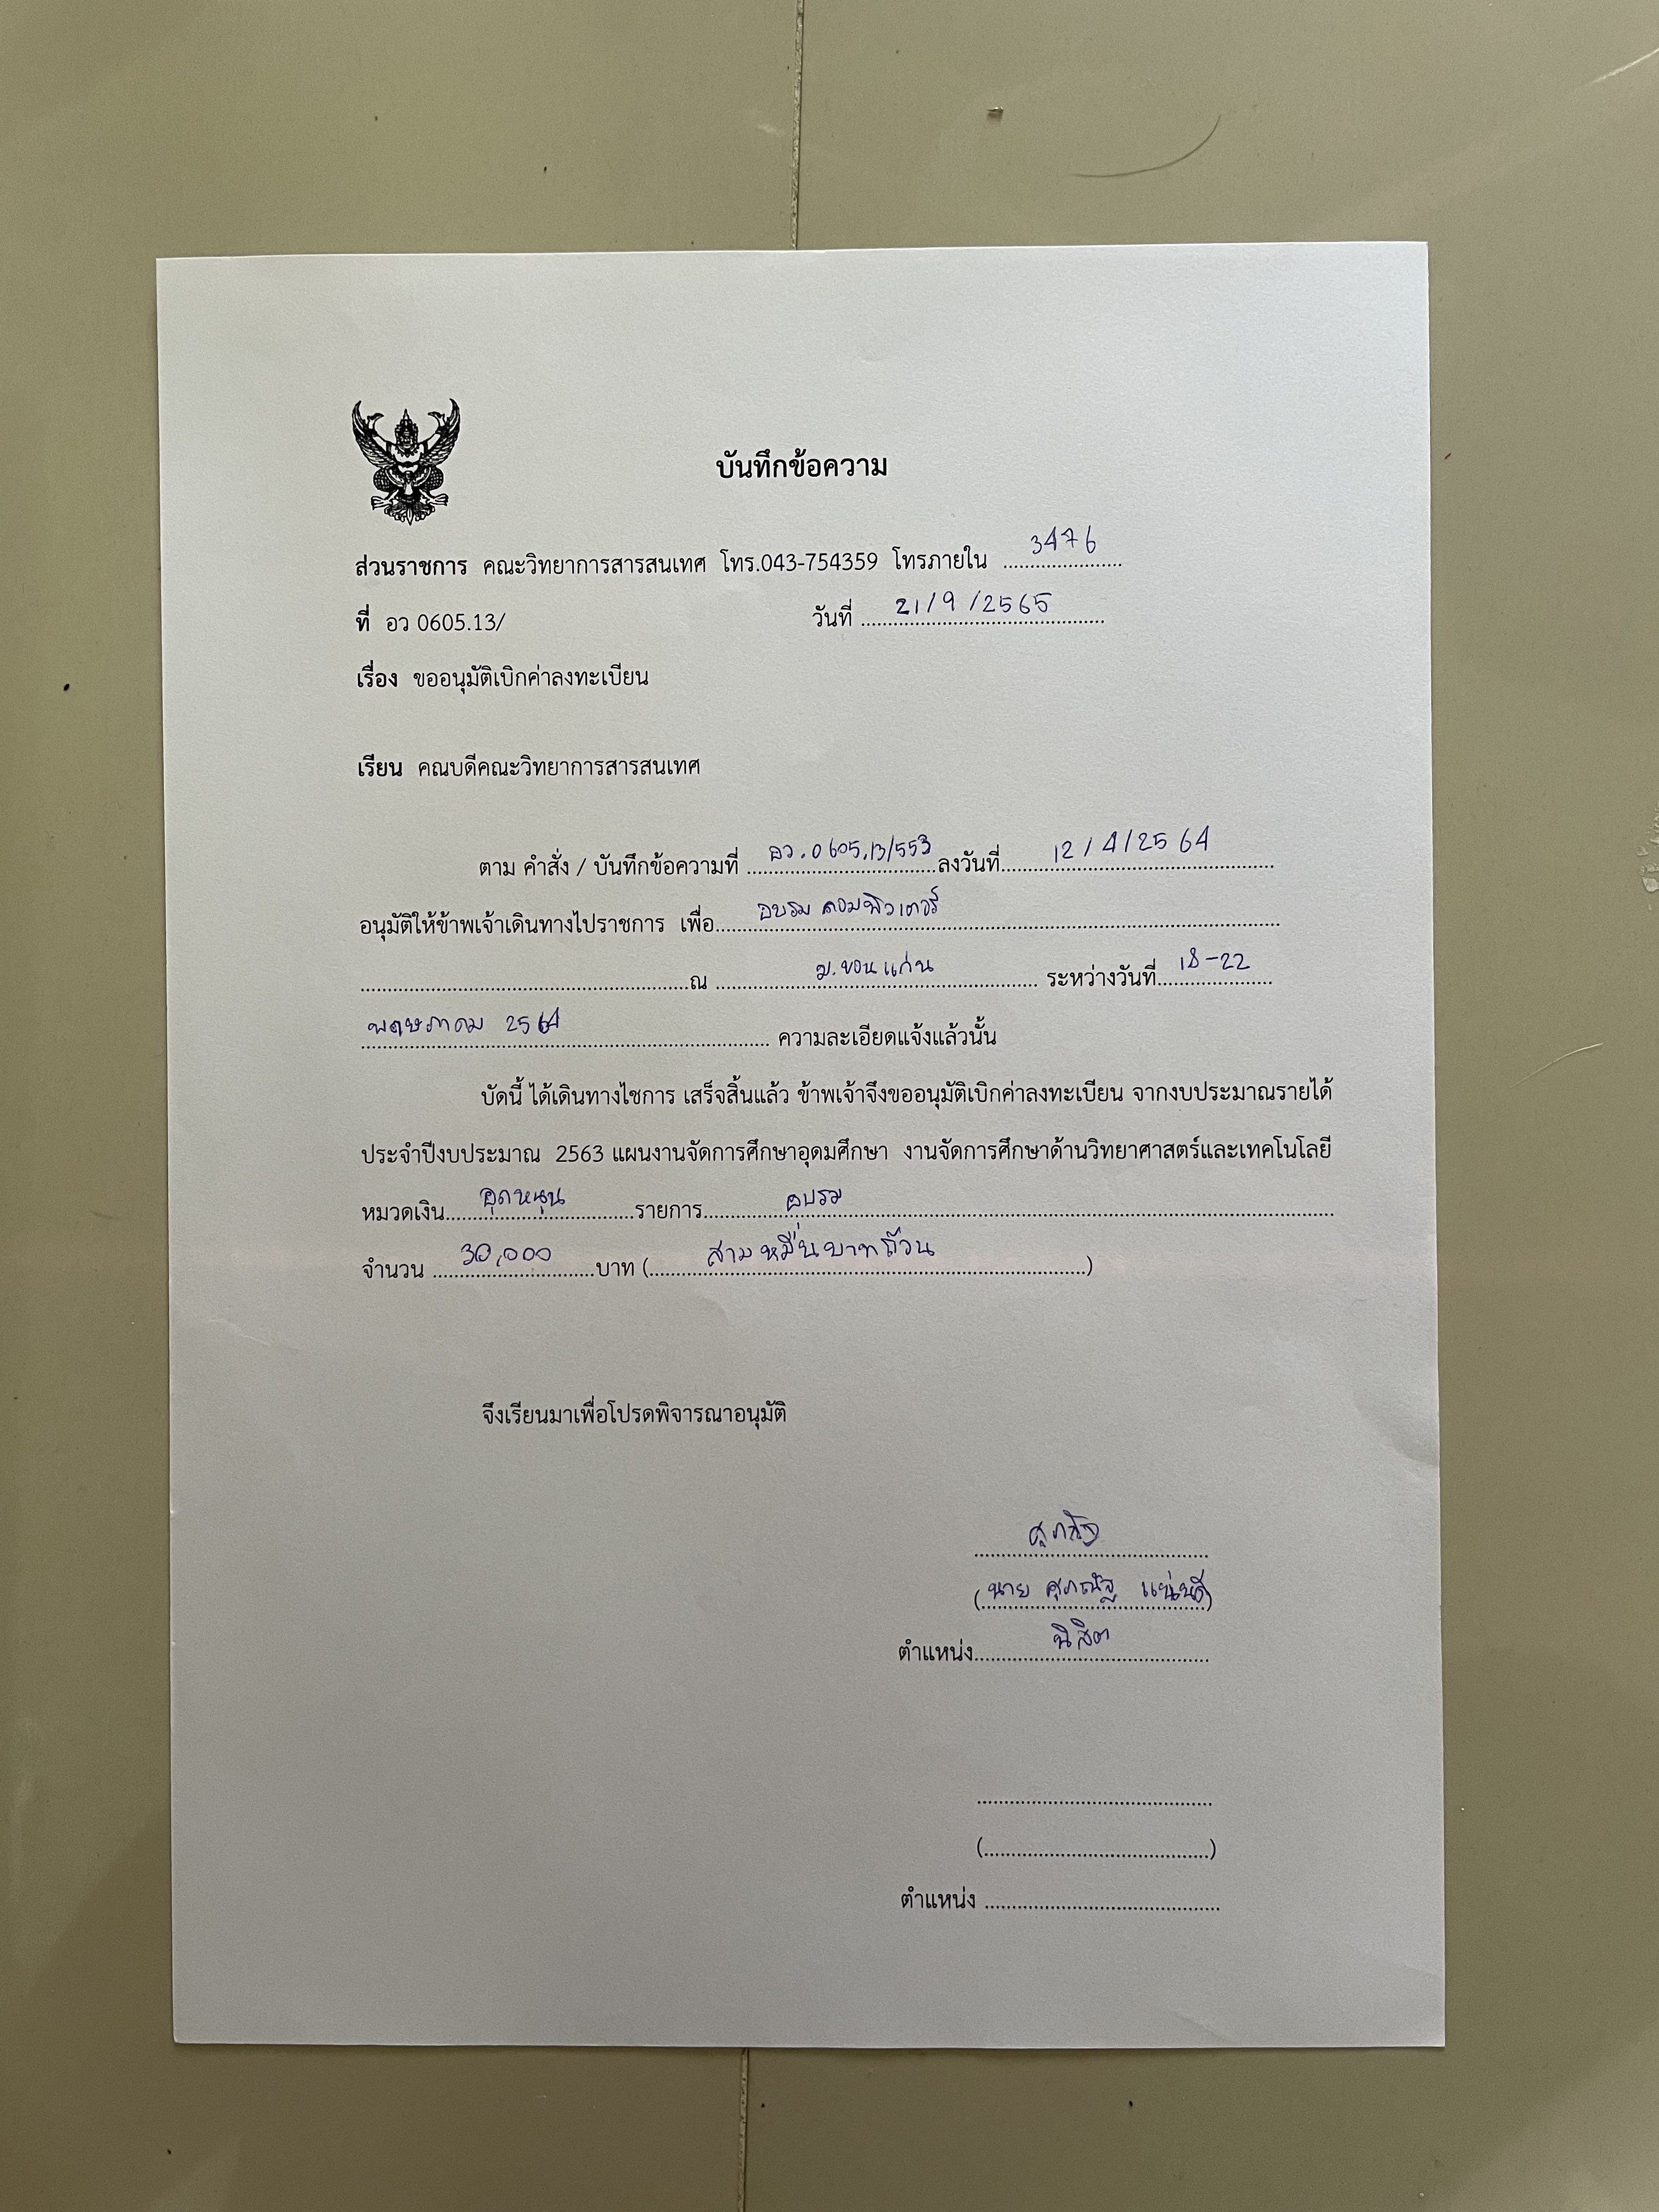 บันทึกข้อความ
ส่วนราชการ คณะวิทยาการสารสนเทศ โทร.043-754359 โทรภายใน 3476
ที่ อว 0605.13/ วันที่ 21/9/2565
เรื่อง ขออนุมัติเบิกค่าลงทะเบียน
เรียน คณบดีคณะวิทยาการสารสนเทศ
ตาม คำสั่ง / บันทึกข้อความที่ อว.0605.13/553 ลงวันที่ 12/4/2564
อนุมัติให้ข้าพเจ้าเดินทางไปราชการ เพื่อ อบรม คอมพิวเตอร์
ณ ม.ขอนแก่น ระหว่างวันที่ 18-22
พฤษภาคม 2564 ความละเอียดแจ้งแล้วนั้น
บัดนี้ ได้เดินทางไชการ เสร็จสิ้นแล้ว ข้าพเจ้าจึงขออนุมัติเบิกค่าลงทะเบียน จากงบประมาณรายได้
ประจำปีงบประมาณ 2563 แผนงานจัดการศึกษาอุดมศึกษา งานจัดการศึกษาด้านวิทยาศาสตร์และเทคโนโลยี
หมวดเงิน อุดหนุน รายการ อบรม
จำนวน 30,000 บาท (สามหมื่นบาทถ้วน)
จึงเรียนมาเพื่อโปรดพิจารณาอนุมัติ
(นาย ศุภณัฐ )
ตำแหน่ง นิสิต
ตำแหน่ง